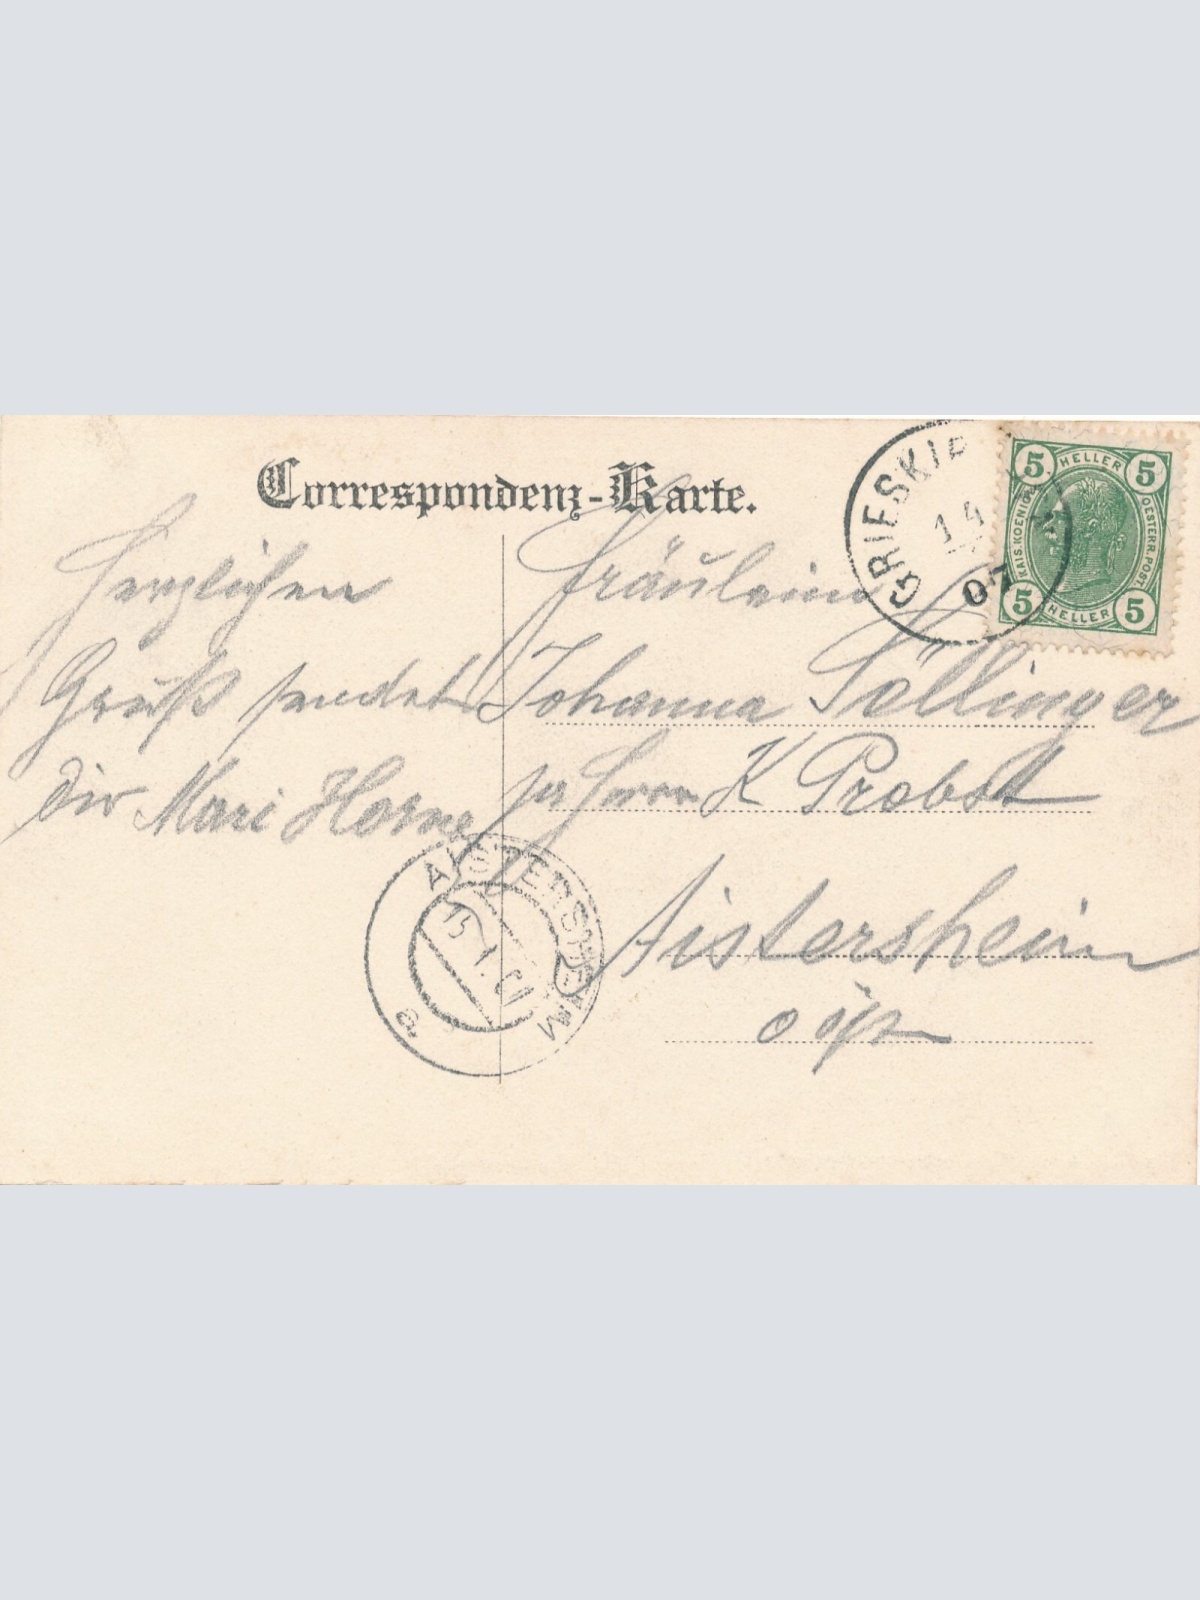 Correspondenz-Karte.
Herzlichen
Gruß sendet
Dir Mari
Fräulein
Johanna Söllinger
Herrn K Probst
Aistersheim
GRIESKIR
14
07
5 HELLER 5
KAIS. KOENIGL. OESTERR. POST.
5 HELLER 5
AISTERSHEIM
15
a